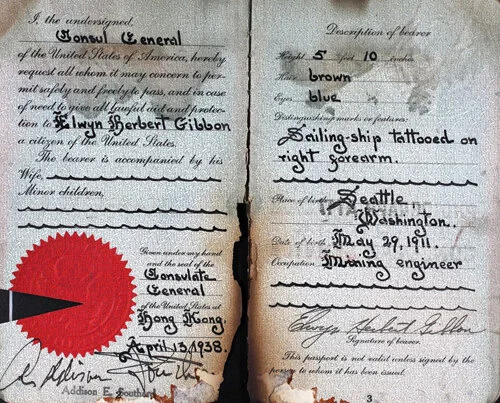 I, the undersigned,
Consul General
of the United States of America, hereby
request all whom it may concern to per-
mit safely and freely to pass, and in case
of need to give all lawful aid and protec-
tion to Elwyn Herbert Gibbon
a citizen of the United States.
The bearer is accompanied by his
Wife,
Minor children,
Given under my hand
and the seal of the
Consulate
General
of the United States at
Hong Kong.
April 13, 1938.
Addison E. Southard
Description of bearer
Height 5 feet 10 inches
Hair brown
Eyes blue
Distinguishing marks or features:
Sailing-ship tattooed on
right forearm.
Place of birth Seattle
Washington.
Date of birth May 29, 1911.
Occupation Mining engineer
Elwyn Herbert Gibbon
Signature of bearer.
This passport is not valid unless signed by the
person to whom it has been issued.
3